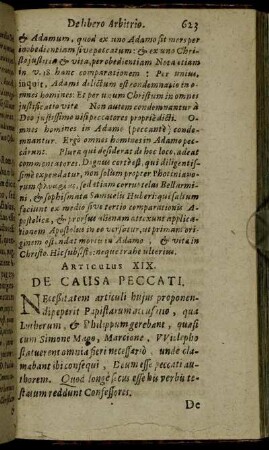 De libero Arbitrio. 623
& Adamum, quod ex uno Adamo sit mors per
inobedientiam sive peccatum: & ex uno Chri-
sto justitia & vita, per obedientiam Nota etiam
in v. 18. hanc comparationem: Per unius,
inquit, Adami delictum est condemnatio in o-
mnes homines: Et per unum Christum in omnes
justificatio vitæ Non autem condemnantur à
Deo justissimo nisi peccatores propriè dicti. O-
mnes homines in Adamo (peccante) conde-
mnantur. Ergò omnes homines in Adamo pec-
carunt. Plura qui desiderat de hoc loco, adeat
commentatores. Dignus certè est, qui diligentis-
simè expendatur, non solum propter Photiniano-
rum, sed etiam corruptelas Bellarmi-
ni, & sophismata Samuelis Huberi: qui saltum
faciunt ex medio sive tertio comparationis A-
postolicæ, & prorsus alienam affingunt applicati-
onem Apostolo in eo versatur, ut primam ori-
ginem ostendat mortis in Adamo, & vitæ in
Christo. Hic subsisto: neque trahe ulterius.
ARTICULUS XIX.
DE CAUSA PECCATI.
Necessitatem articuli hujus proponen-
di peperit Papistarum accusatio, qua
Lutherum, & Philippum gerebant, quasi
cum Simone Mago, Marcione, VViclepho
statuerent omnia fieri necessariò, unde cla-
mabant ibi consequi, Deum esse peccati au-
thorem. Quod longè secus esse his verbis te-
statum reddunt Confessores.
De